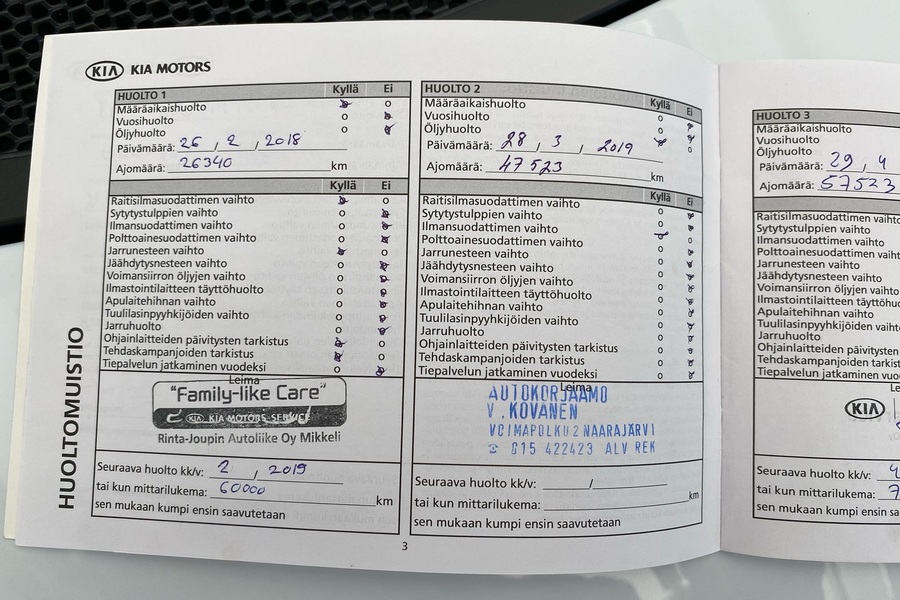 KIA KIA MOTORS
HUOLTOMUISTIO
HUOLTO 1 Kyllä Ei
Määräaikaishuolto
Vuosihuolto
Öljyhuolto
Päivämäärä: 26 , 2 , 2018
Ajomäärä: 26340 km
Kyllä Ei
Raitisilmasuodattimen vaihto
Sytytystulppien vaihto
Ilmansuodattimen vaihto
Polttoainesuodattimen vaihto
Jarrunesteen vaihto
Jäähdytysnesteen vaihto
Voimansiirron öljyjen vaihto
Ilmastointilaitteen täyttöhuolto
Apulaitehihnan vaihto
Tuulilasinpyyhkijöiden vaihto
Jarruhuolto
Ohjainlaitteiden päivitysten tarkistus
Tehdaskampanjoiden tarkistus
Tiepalvelun jatkaminen vuodeksi
Leima
"Family-like Care"
KIA KIA MOTORS SERVICE
Rinta-Joupin Autoliike Oy Mikkeli
Seuraava huolto kk/v: 2 , 2019
tai kun mittarilukema: 60000 km
sen mukaan kumpi ensin saavutetaan
HUOLTO 2 Kyllä Ei
Määräaikaishuolto
Vuosihuolto
Öljyhuolto
Päivämäärä: 28 , 3 , 2019
Ajomäärä: 47523 km
Kyllä Ei
Raitisilmasuodattimen vaihto
Sytytystulppien vaihto
Ilmansuodattimen vaihto
Polttoainesuodattimen vaihto
Jarrunesteen vaihto
Jäähdytysnesteen vaihto
Voimansiirron öljyjen vaihto
Ilmastointilaitteen täyttöhuolto
Apulaitehihnan vaihto
Tuulilasinpyyhkijöiden vaihto
Jarruhuolto
Ohjainlaitteiden päivitysten tarkistus
Tehdaskampanjoiden tarkistus
Tiepalvelun jatkaminen vuodeksi
Leima
AUTOKORJAAMO
V. KOVANEN
VOIMAPOLKU 2 NAARAJÄRVI
☎ 015 422423 ALV REK
Seuraava huolto kk/v: /
tai kun mittarilukema: km
sen mukaan kumpi ensin saavutetaan
3
HUOLTO 3
Määräaikaishuolto
Vuosihuolto
Öljyhuolto
Päivämäärä: 29 , 4
Ajomäärä: 57523
Raitisilmasuodattimen vaihto
Sytytystulppien vaihto
Ilmansuodattimen vaihto
Polttoainesuodattimen vaihto
Jarrunesteen vaihto
Jäähdytysnesteen vaihto
Voimansiirron öljyjen vaihto
Ilmastointilaitteen täyttöhu
Apulaitehihnan vaihto
Tuulilasinpyyhkijöiden vaihto
Jarruhuolto
Ohjainlaitteiden päivitysten
Tehdaskampanjoiden tarkist
Tiepalvelun jatkaminen vuo
Le
KIA
Seuraava huolto kk/v: 4
tai kun mittarilukema: 7
sen mukaan kumpi ensin saa